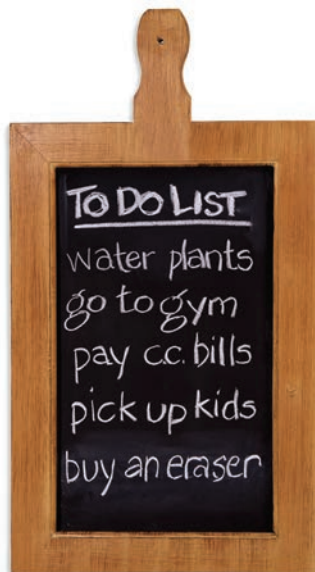 TO DO LIST
water plants
go to gym
pay c.c. bills
pick up kids
buy an eraser